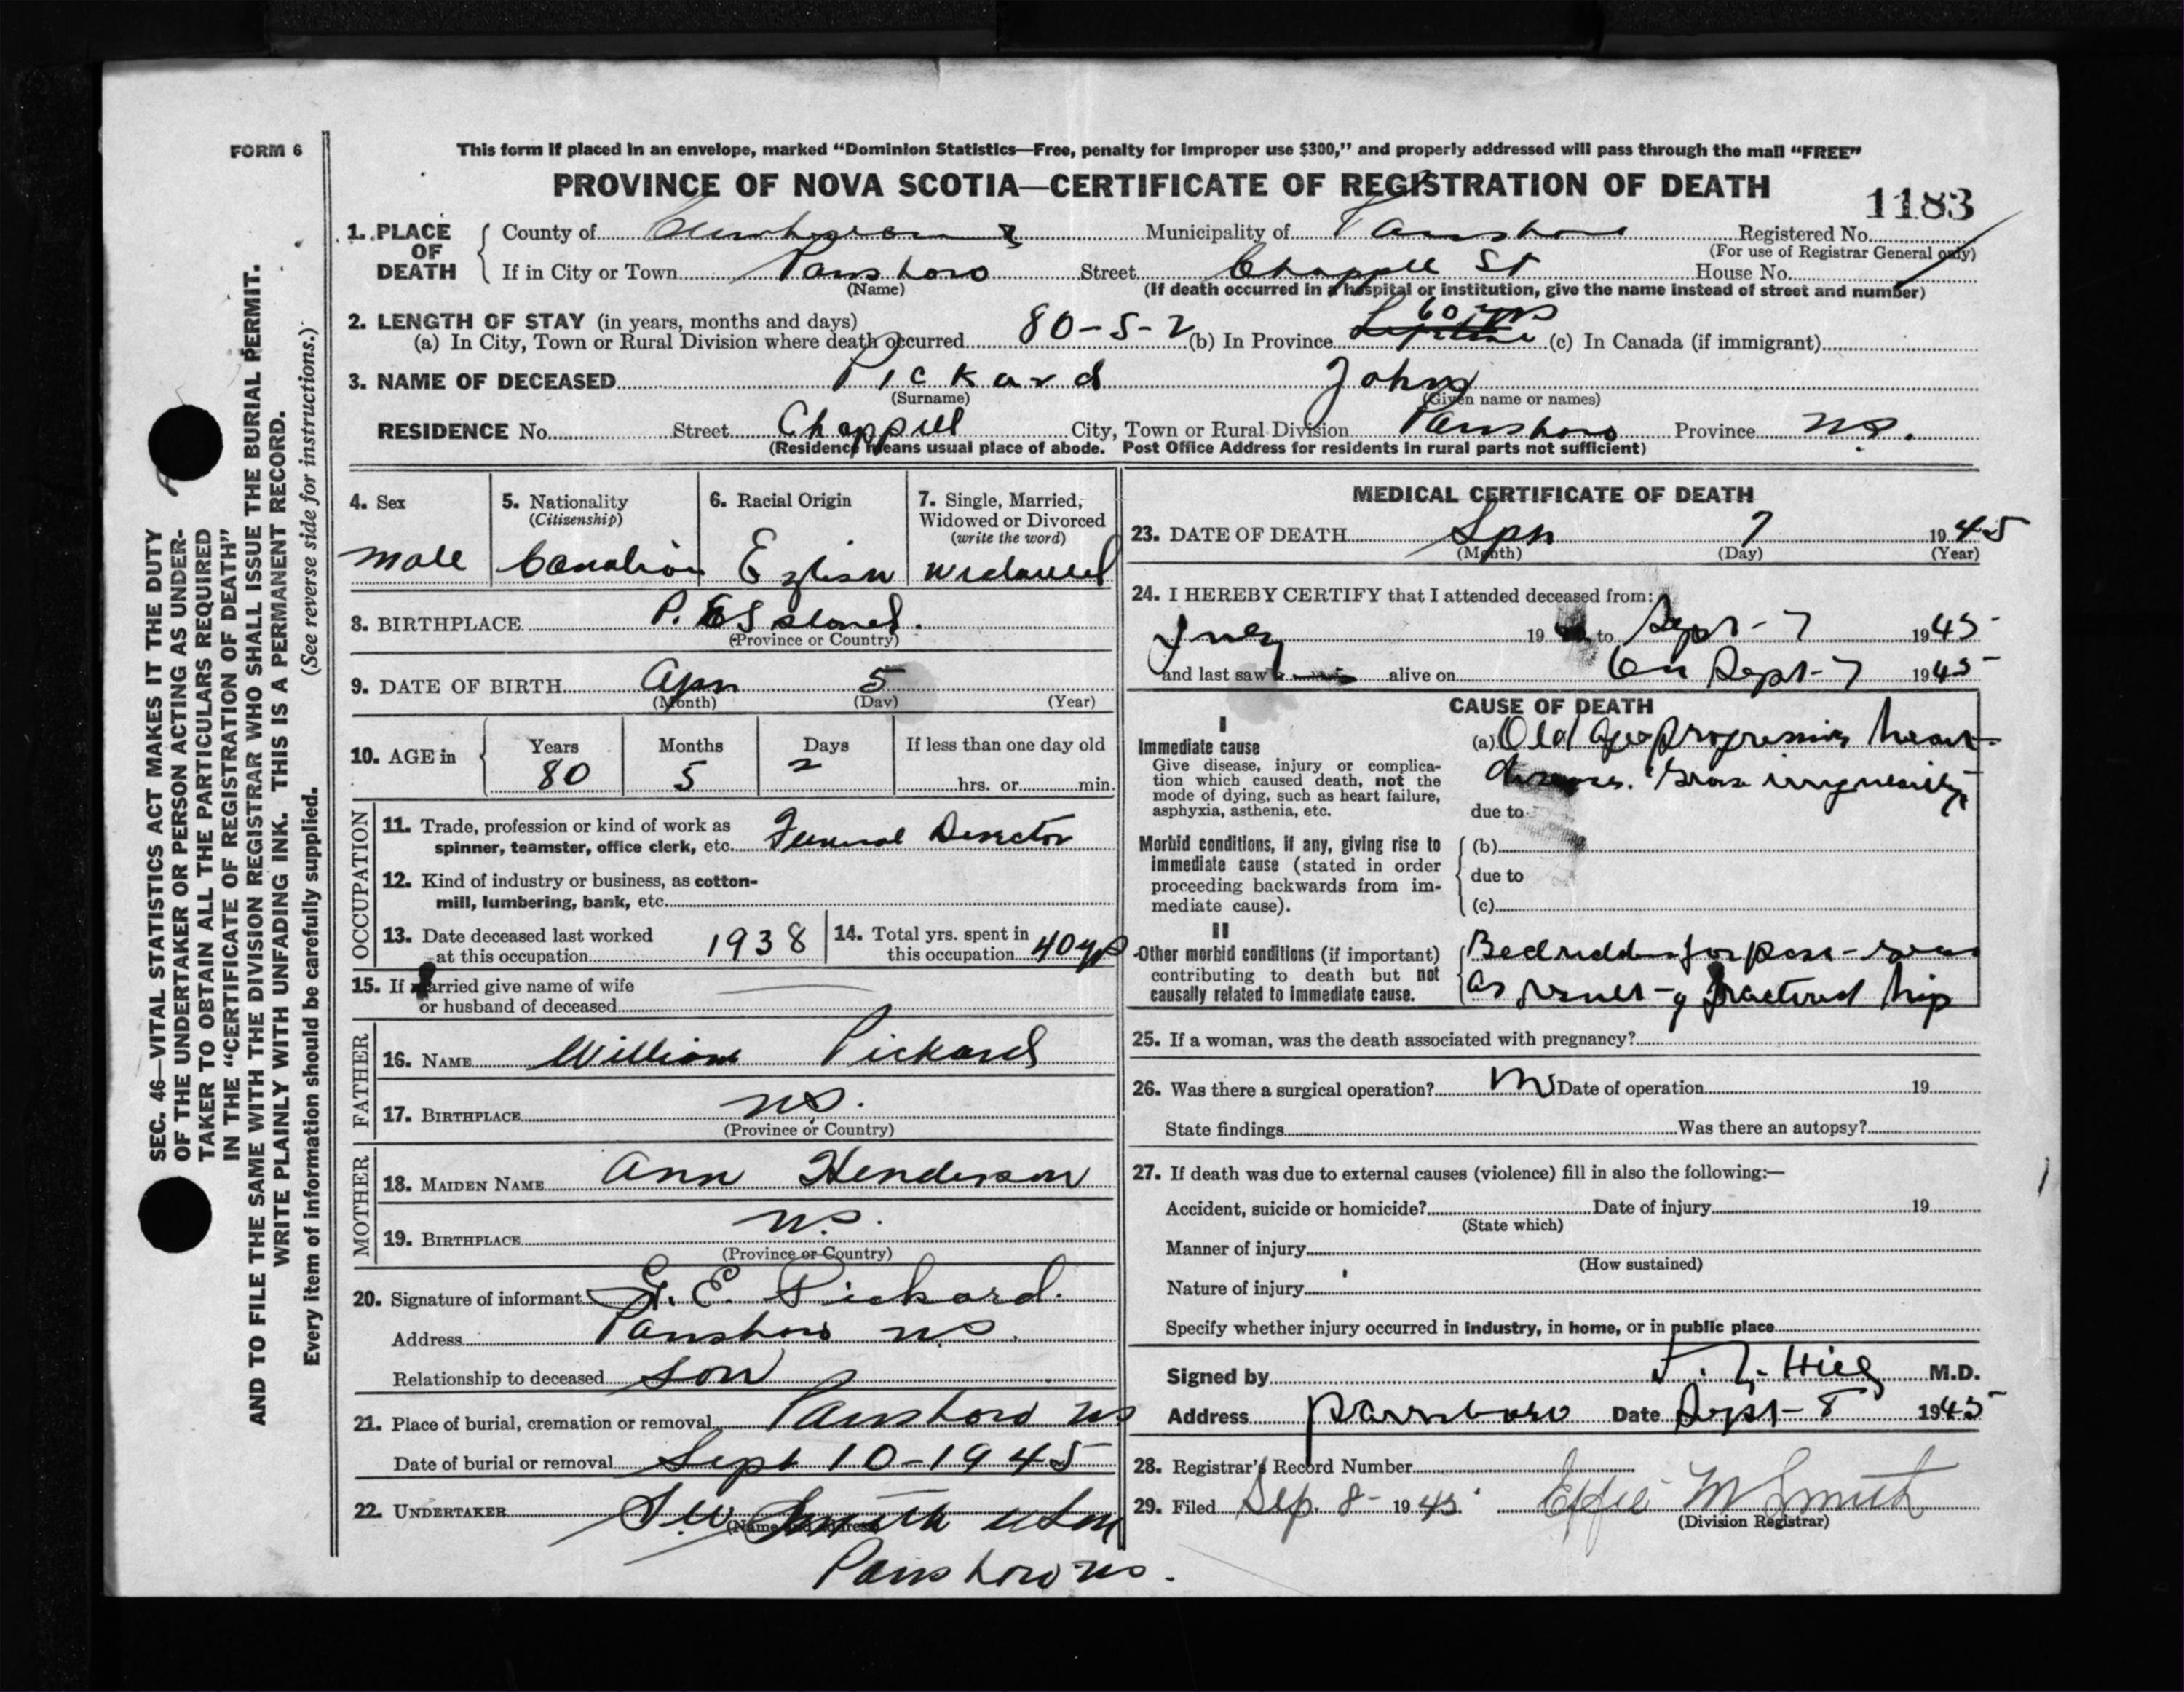 FORM 6
This form if placed in an envelope, marked “Dominion Statistics—Free, penalty for improper use $300,” and properly addressed will pass through the mail “FREE”
PROVINCE OF NOVA SCOTIA—CERTIFICATE OF REGISTRATION OF DEATH
1183
1. PLACE OF DEATH
County of Cumberland Municipality of Parrsboro Registered No.
(For use of Registrar General only)
If in City or Town Parrsboro Street Chappell St House No.
(Name) (If death occurred in a hospital or institution, give the name instead of street and number)
2. LENGTH OF STAY (in years, months and days) 60 yrs
(a) In City, Town or Rural Division where death occurred 80-5-2 (b) In Province (c) In Canada (if immigrant)
3. NAME OF DECEASED Pickard John
(Surname) (Given name or names)
RESIDENCE No. Street Chappell City, Town or Rural Division Parrsboro Province N.S.
(Residence means usual place of abode. Post Office Address for residents in rural parts not sufficient)
4. Sex
male
5. Nationality
(Citizenship)
Canadian
6. Racial Origin
English
7. Single, Married, Widowed or Divorced
(write the word)
widowed
8. BIRTHPLACE P. E Island.
(Province or Country)
9. DATE OF BIRTH Apr 5
(Month) (Day) (Year)
10. AGE in Years Months Days If less than one day old
80 5 2 hrs. or min.
OCCUPATION
11. Trade, profession or kind of work as
spinner, teamster, office clerk, etc. Funeral Director
12. Kind of industry or business, as cotton-
mill, lumbering, bank, etc.
13. Date deceased last worked
at this occupation 1938
14. Total yrs. spent in
this occupation 40 yrs
15. If married give name of wife
or husband of deceased
FATHER
16. NAME William Pickard
17. BIRTHPLACE N.S.
(Province or Country)
MOTHER
18. MAIDEN NAME Ann Henderson
19. BIRTHPLACE N.S.
(Province or Country)
20. Signature of informant G. E. Pickard.
Address Parrsboro N.S.
Relationship to deceased son
21. Place of burial, cremation or removal Parrsboro NS
Date of burial or removal Sept 10-1945
22. UNDERTAKER Smith & Son
(Name and address)
Parrsboro N.S.
MEDICAL CERTIFICATE OF DEATH
23. DATE OF DEATH Sep 7 1945
(Month) (Day) (Year)
24. I HEREBY CERTIFY that I attended deceased from:
July 19 to Sept-7 1945
and last saw h alive on on Sept-7 1945
CAUSE OF DEATH
I
Immediate cause
Give disease, injury or complica-
tion which caused death, not the
mode of dying, such as heart failure,
asphyxia, asthenia, etc.
(a) Old Age progressive heart
disease. Gross irregularity
due to
Morbid conditions, if any, giving rise to
immediate cause (stated in order
proceeding backwards from im-
mediate cause).
(b)
due to
(c)
II
Other morbid conditions (if important)
contributing to death but not
causally related to immediate cause.
Bedridden for past
as result of fractured hip
25. If a woman, was the death associated with pregnancy?
26. Was there a surgical operation? No Date of operation 19
State findings Was there an autopsy?
27. If death was due to external causes (violence) fill in also the following:—
Accident, suicide or homicide? Date of injury 19
(State which)
Manner of injury
(How sustained)
Nature of injury
Specify whether injury occurred in industry, in home, or in public place
Signed by Hill M.D.
Address Parrsboro Date Sept-8 1945
28. Registrar's Record Number
29. Filed Sep. 8- 1945. Effie M Smith
(Division Registrar)
SEC. 46—VITAL STATISTICS ACT MAKES IT THE DUTY
OF THE UNDERTAKER OR PERSON ACTING AS UNDER-
TAKER TO OBTAIN ALL THE PARTICULARS REQUIRED
IN THE “CERTIFICATE OF REGISTRATION OF DEATH”
AND TO FILE THE SAME WITH THE DIVISION REGISTRAR WHO SHALL ISSUE THE BURIAL PERMIT.
WRITE PLAINLY WITH UNFADING INK. THIS IS A PERMANENT RECORD.
Every item of information should be carefully supplied. (See reverse side for instructions.)